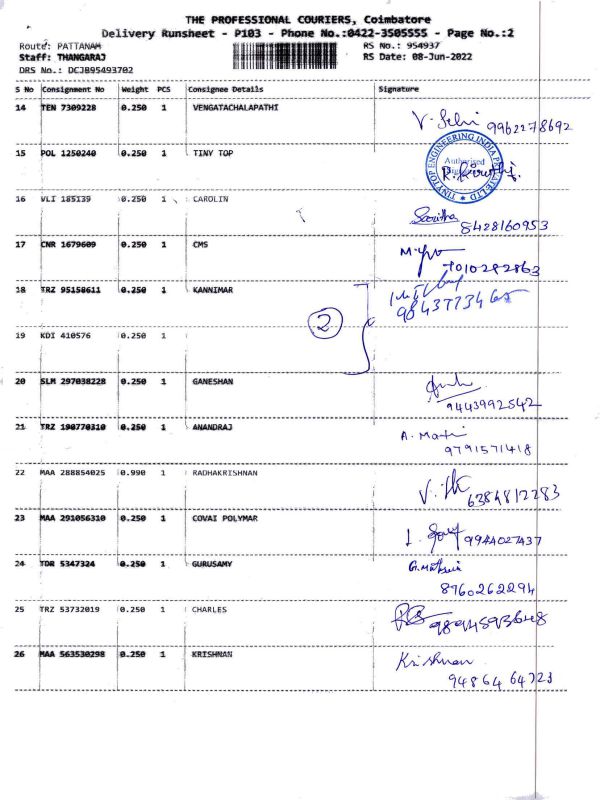 THE PROFESSIONAL COURIERS, Coimbatore
Delivery Runsheet - P103 - Phone No.:0422-3505555 - Page No.:2
Route: PATTANAM
RS No.: 954937
Staff: THANGARAJ
RS Date: 08-Jun-2022
DRS No.: DCJB95493702
S No Consignment No Weight PCS Consignee Details Signature
14 TEN 7309228 0.250 1 VENGATACHALAPATHI
V. Selvi 9962278692
15 POL 1250240 0.250 1 TINY TOP
TINYTOP ENGINEERING INDIA PRIVATE LTD
Authorised
16 VLI 185139 0.250 1 CAROLIN
Saritha
8428160953
17 CNR 1679609 0.250 1 CMS
7010282863
18 TRZ 95158611 0.250 1 KANNIMAR
2
19 KDI 410576 0.250 1
20 SLM 297038228 0.250 1 GANESHAN
9443992542
21 TRZ 190770310 0.250 1 ANANDRAJ
A. Mati
9791571418
22 MAA 288854025 0.990 1 RADHAKRISHNAN
6384812283
23 MAA 291056310 0.250 1 COVAI POLYMAR
9944027437
24 TDR 5347324 0.250 1 GURUSAMY
8760262294
25 TRZ 53732019 0.250 1 CHARLES
9894593648
26 MAA 563530298 0.250 1 KRISHNAN
Krishnan
9486464723